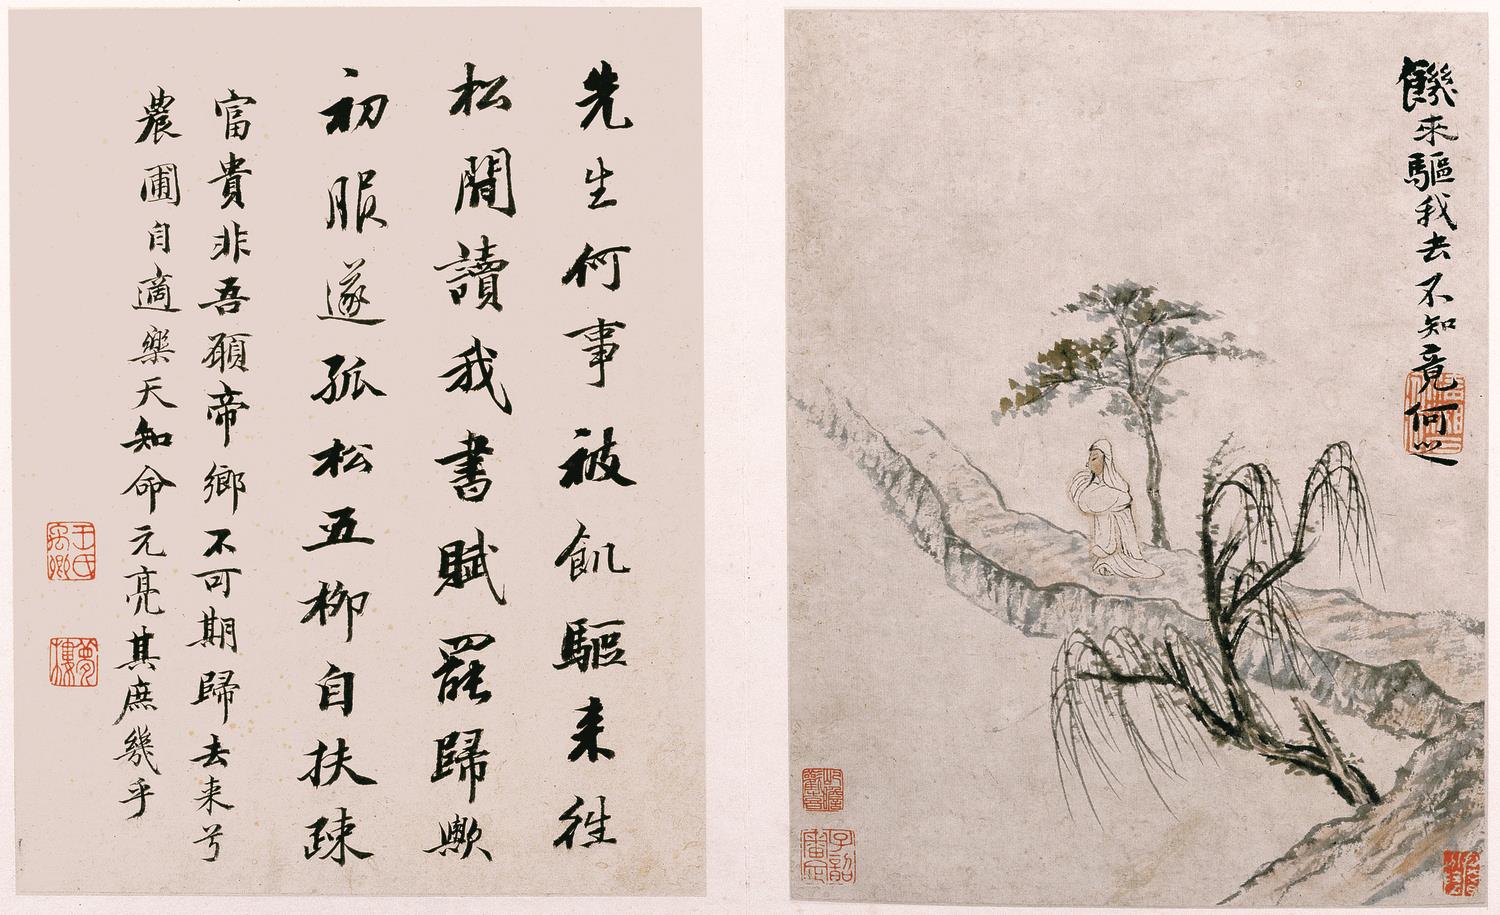 饑來驅我去不知竟何之
先生何事被飢驅來往
松間讀我書賦罷歸歟
初服遂孤松五柳自扶疎
富貴非吾願帝鄉不可期歸去来兮
農圃自適樂天知命元亮其庶幾乎
王氏禹卿
夢樓